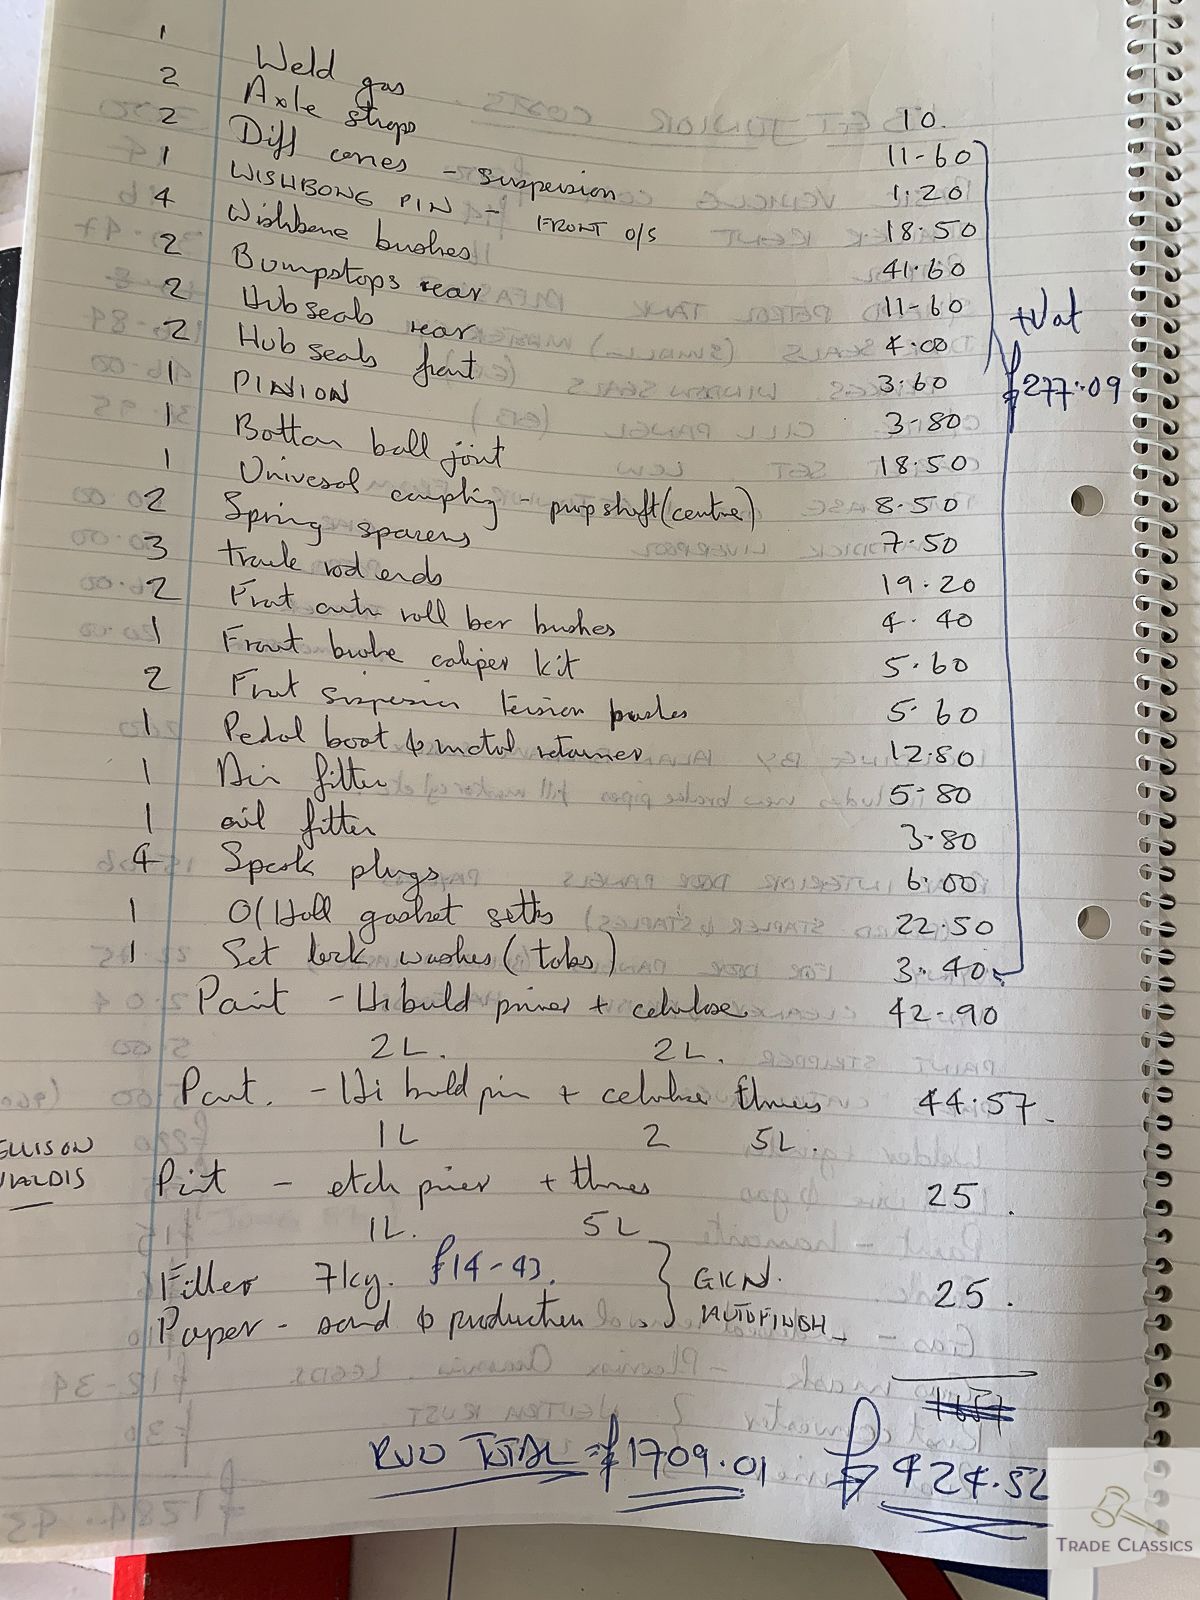 1 Weld gas 10.
2 Axle straps 11-60
2 Diff cones - suspension 1.20
1 WISHBONE PIN - FRONT O/S 18.50
4 Wishbone bushes 41.60
2 Bumpstops rear 11-60
2 Hub seals rear 4.00
2 Hub seals front 3.60
1 PINION 3-80
1 Bottom ball joint 18.50
1 Universal coupling - propshaft (centre) 8.50
2 Spring spacers 7.50
3 track rod ends 19.20
2 Front anti roll bar bushes 4.40
1 Front brake caliper kit 5.60
2 Front suspension tension bushes 5.60
1 Pedal boot & metal retainer 12.80
1 Air filter 5.80
1 oil filter 3.80
4 Spark plugs 6.00
1 O/Hall gasket setts 22.50
1 Set lock washes (tabs) 3.40
+Vat
£277.09
Paint - Hi build primer + celulose 42-90
2L. 2L.
Paint. - Hi build prim + celulose thinners 44.57.
1L 2 5L.
ELLISON
Paint - etch primer + thinners 25.
1L. 5L
Filler 7kg. £14-43.
Paper - sand & production
GKN.
AUTOFINISH
25.
TOTAL = £1709.01 £424.52
TRADE CLASSICS